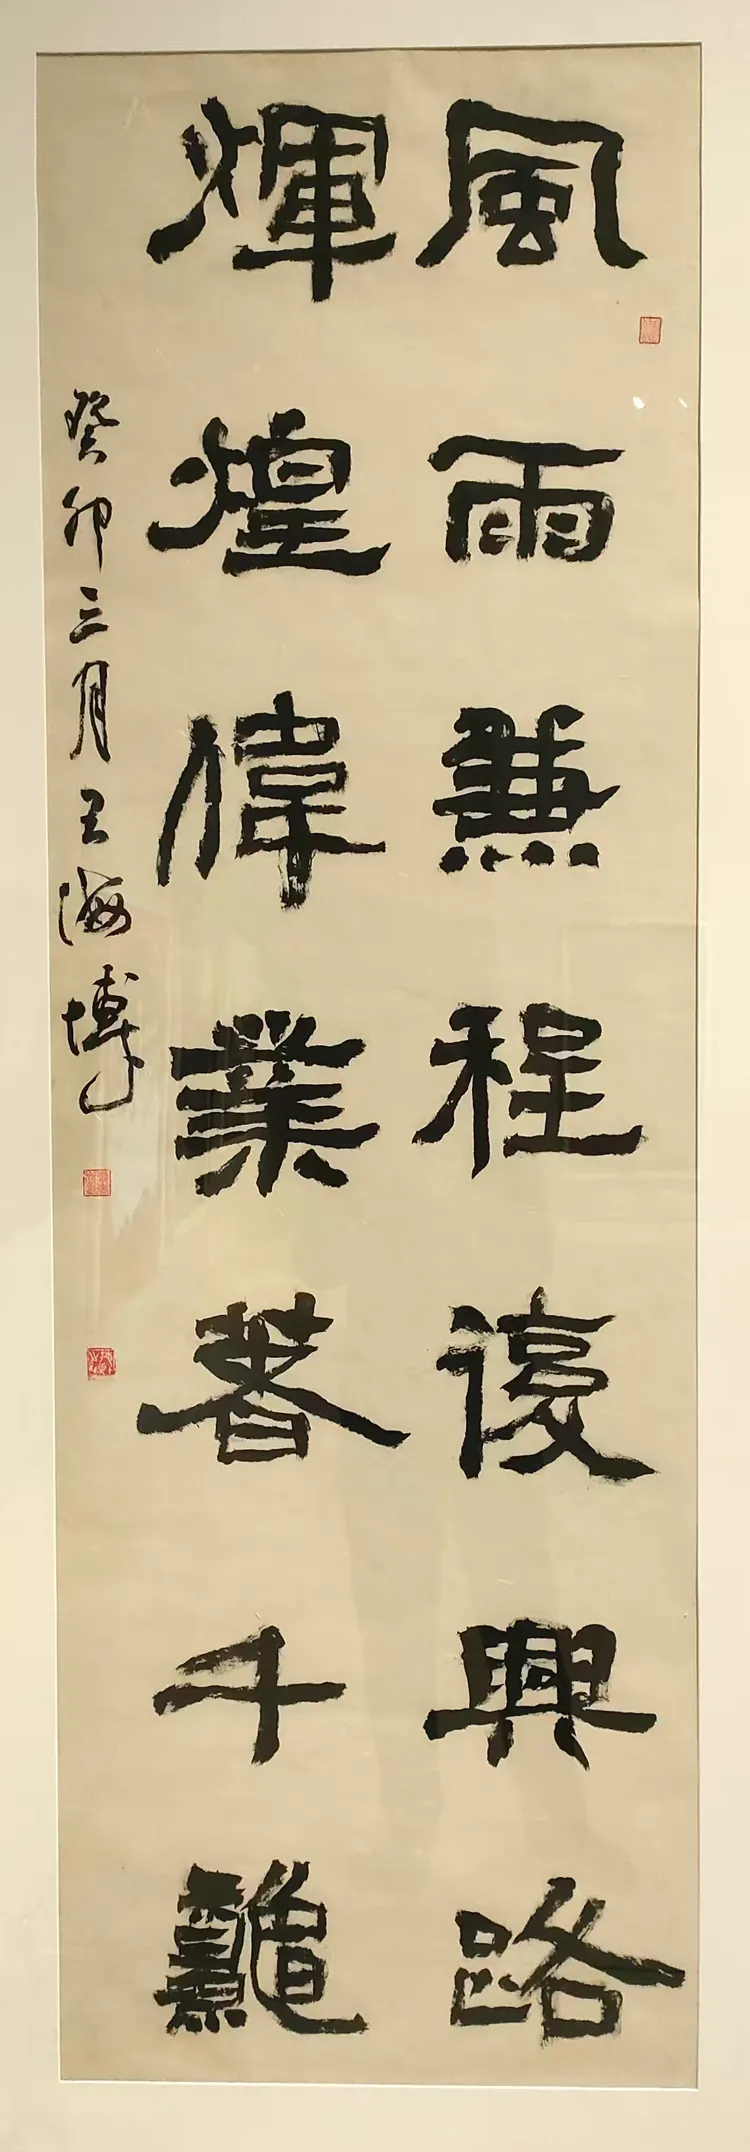 風雨兼程復興路
煇煌偉業著千龝
癸卯三月王海博